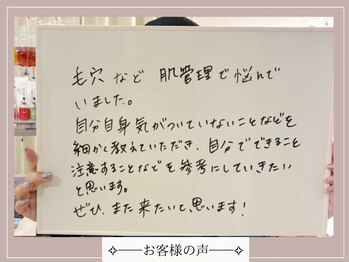 毛穴など 肌管理で悩んで
いました。
自分自身気がついていないことなどを
細かく教えていただき、自分でできること
注意することなどを参考にしていきたい
と思います。
ぜひ、また来たいと思います!
お客様の声